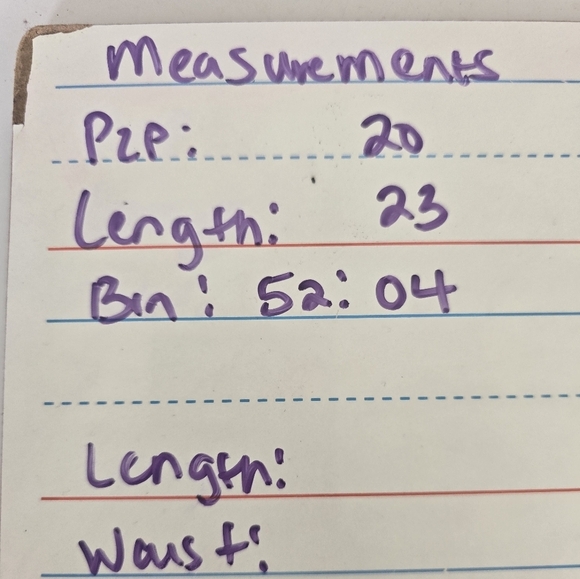 Measurements
P2P: 20
Length: 23
Bin: 52:04
Length:
Waist: